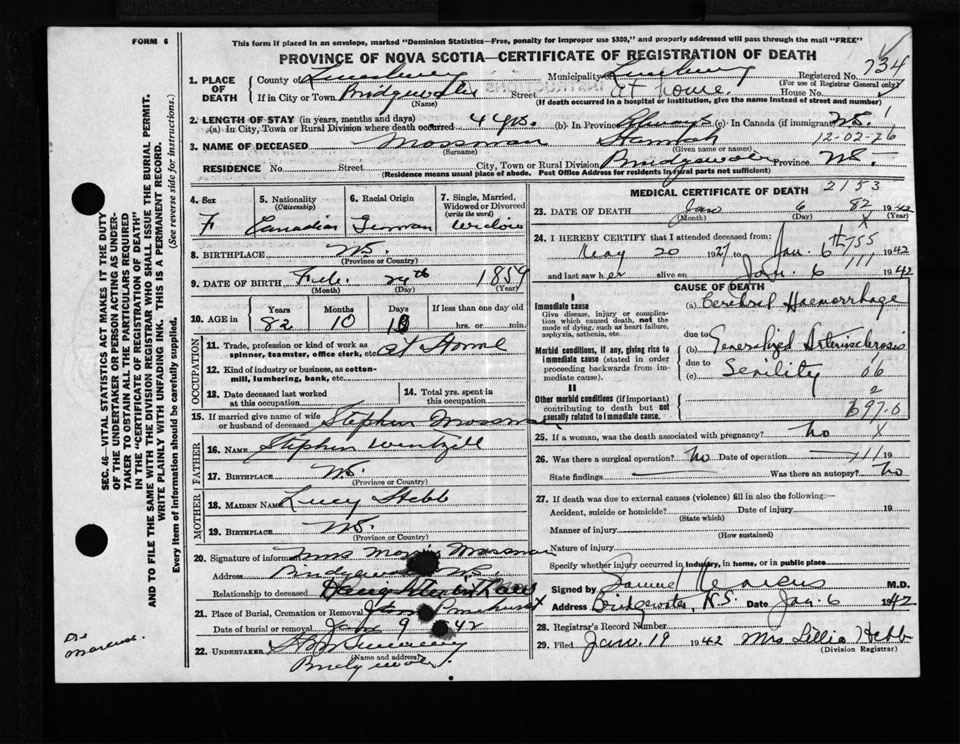 FORM 6
This form if placed in an envelope, marked "Dominion Statistics—Free, penalty for improper use $300," and properly addressed will pass through the mail "FREE"
PROVINCE OF NOVA SCOTIA—CERTIFICATE OF REGISTRATION OF DEATH
734
1. PLACE OF DEATH
County of Lunenburg Municipality Lunenburg Registered No.
(For use of Registrar General only)
If in City or Town Bridgewater Street At home. House No.
(Name) (If death occurred in a hospital or institution, give the name instead of street and number)
2. LENGTH OF STAY (in years, months and days)
(a) In City, Town or Rural Division where death occurred 4 yrs. (b) In Province Always (c) In Canada (if immigrant) N.S.
12-02-26
3. NAME OF DECEASED Mossman
(Surname) (Given name or names)
RESIDENCE No. Street City, Town or Rural Division Bridgewater Province N.S.
(Residence means usual place of abode. Post Office Address for residents in rural parts not sufficient)
4. Sex F
5. Nationality (Citizenship) Canadian
6. Racial Origin German
7. Single, Married, Widowed or Divorced (write the word) Widow
8. BIRTHPLACE N.S.
(Province or Country)
9. DATE OF BIRTH Feb. 24th 1859
(Month) (Day) (Year)
10. AGE in Years Months Days If less than one day old
82 10 hrs. or min.
OCCUPATION
11. Trade, profession or kind of work as spinner, teamster, office clerk, etc. at Home
12. Kind of industry or business, as cotton-mill, lumbering, bank, etc.
13. Date deceased last worked at this occupation
14. Total yrs. spent in this occupation
15. If married give name of wife or husband of deceased Stephen Mossman
FATHER
16. NAME Stephen Wentzell
17. BIRTHPLACE N.S.
(Province or Country)
MOTHER
18. MAIDEN NAME Lucy Hebb
19. BIRTHPLACE N.S.
(Province or Country)
20. Signature of informant Mrs Mossman
Address Bridgewater N.S.
Relationship to deceased Daughter in Law
21. Place of Burial, Cremation or Removal
Date of burial or removal Jan 9 42
22. UNDERTAKER
(Name and address) Bridgewater
MEDICAL CERTIFICATE OF DEATH 2153
23. DATE OF DEATH Jan 6 82 1942
(Month) (Day) (Year)
X
24. I HEREBY CERTIFY that I attended deceased from:
May 20 1927 to Jan 6th 1942
755
111
and last saw her alive on Jan. 6 1942
CAUSE OF DEATH
I
Immediate cause
Give disease, injury or complication which caused death, not the mode of dying, such as heart failure, asphyxia, asthenia, etc.
(a) Cerebral Haemorrhage
due to
Morbid conditions, if any, giving rise to immediate cause (stated in order proceeding backwards from immediate).
(b) Generalized Arteriosclerosis
due to
(c) Senility
66
II
Other morbid conditions (if important) contributing to death but not causally related to immediate cause.
2
697.0
25. If a woman, was the death associated with pregnancy? No X
26. Was there a surgical operation? No Date of operation — 111 19
State findings — Was there an autopsy? No
27. If death was due to external causes (violence) fill in also the following:—
Accident, suicide or homicide? Date of injury 19
(State which)
Manner of injury
(How sustained)
Nature of injury
Specify whether injury occurred in industry, in home, or in public place
Signed by Samuel Marcus M.D.
Address Bridgewater, N.S. Date Jan. 6 1942
28. Registrar's Record Number
29. Filed Jan. 19 1942 Mrs Lillie Hebb
(Division Registrar)
SEC. 46—VITAL STATISTICS ACT MAKES IT THE DUTY
OF THE UNDERTAKER OR PERSON ACTING AS UNDER-
TAKER TO OBTAIN ALL THE PARTICULARS REQUIRED
IN THE "CERTIFICATE OF REGISTRATION OF DEATH"
AND TO FILE THE SAME WITH THE DIVISION REGISTRAR WHO SHALL ISSUE THE BURIAL PERMIT.
WRITE PLAINLY WITH UNFADING INK. THIS IS A PERMANENT RECORD.
Every item of information should be carefully supplied. (See reverse side for instructions.)
Dr Marcus.